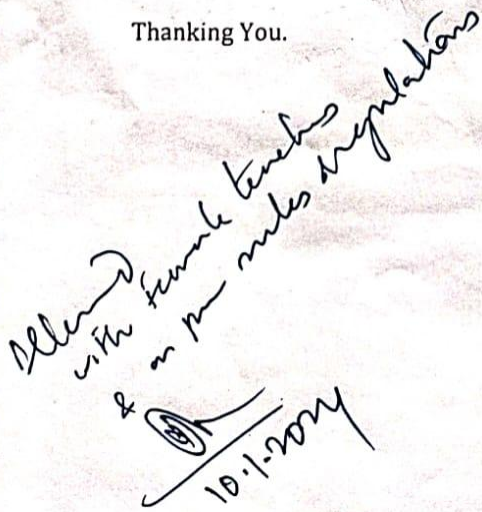 Thanking You.
Allowed
with female teachers
& as per rules & regulations
10.1.2024